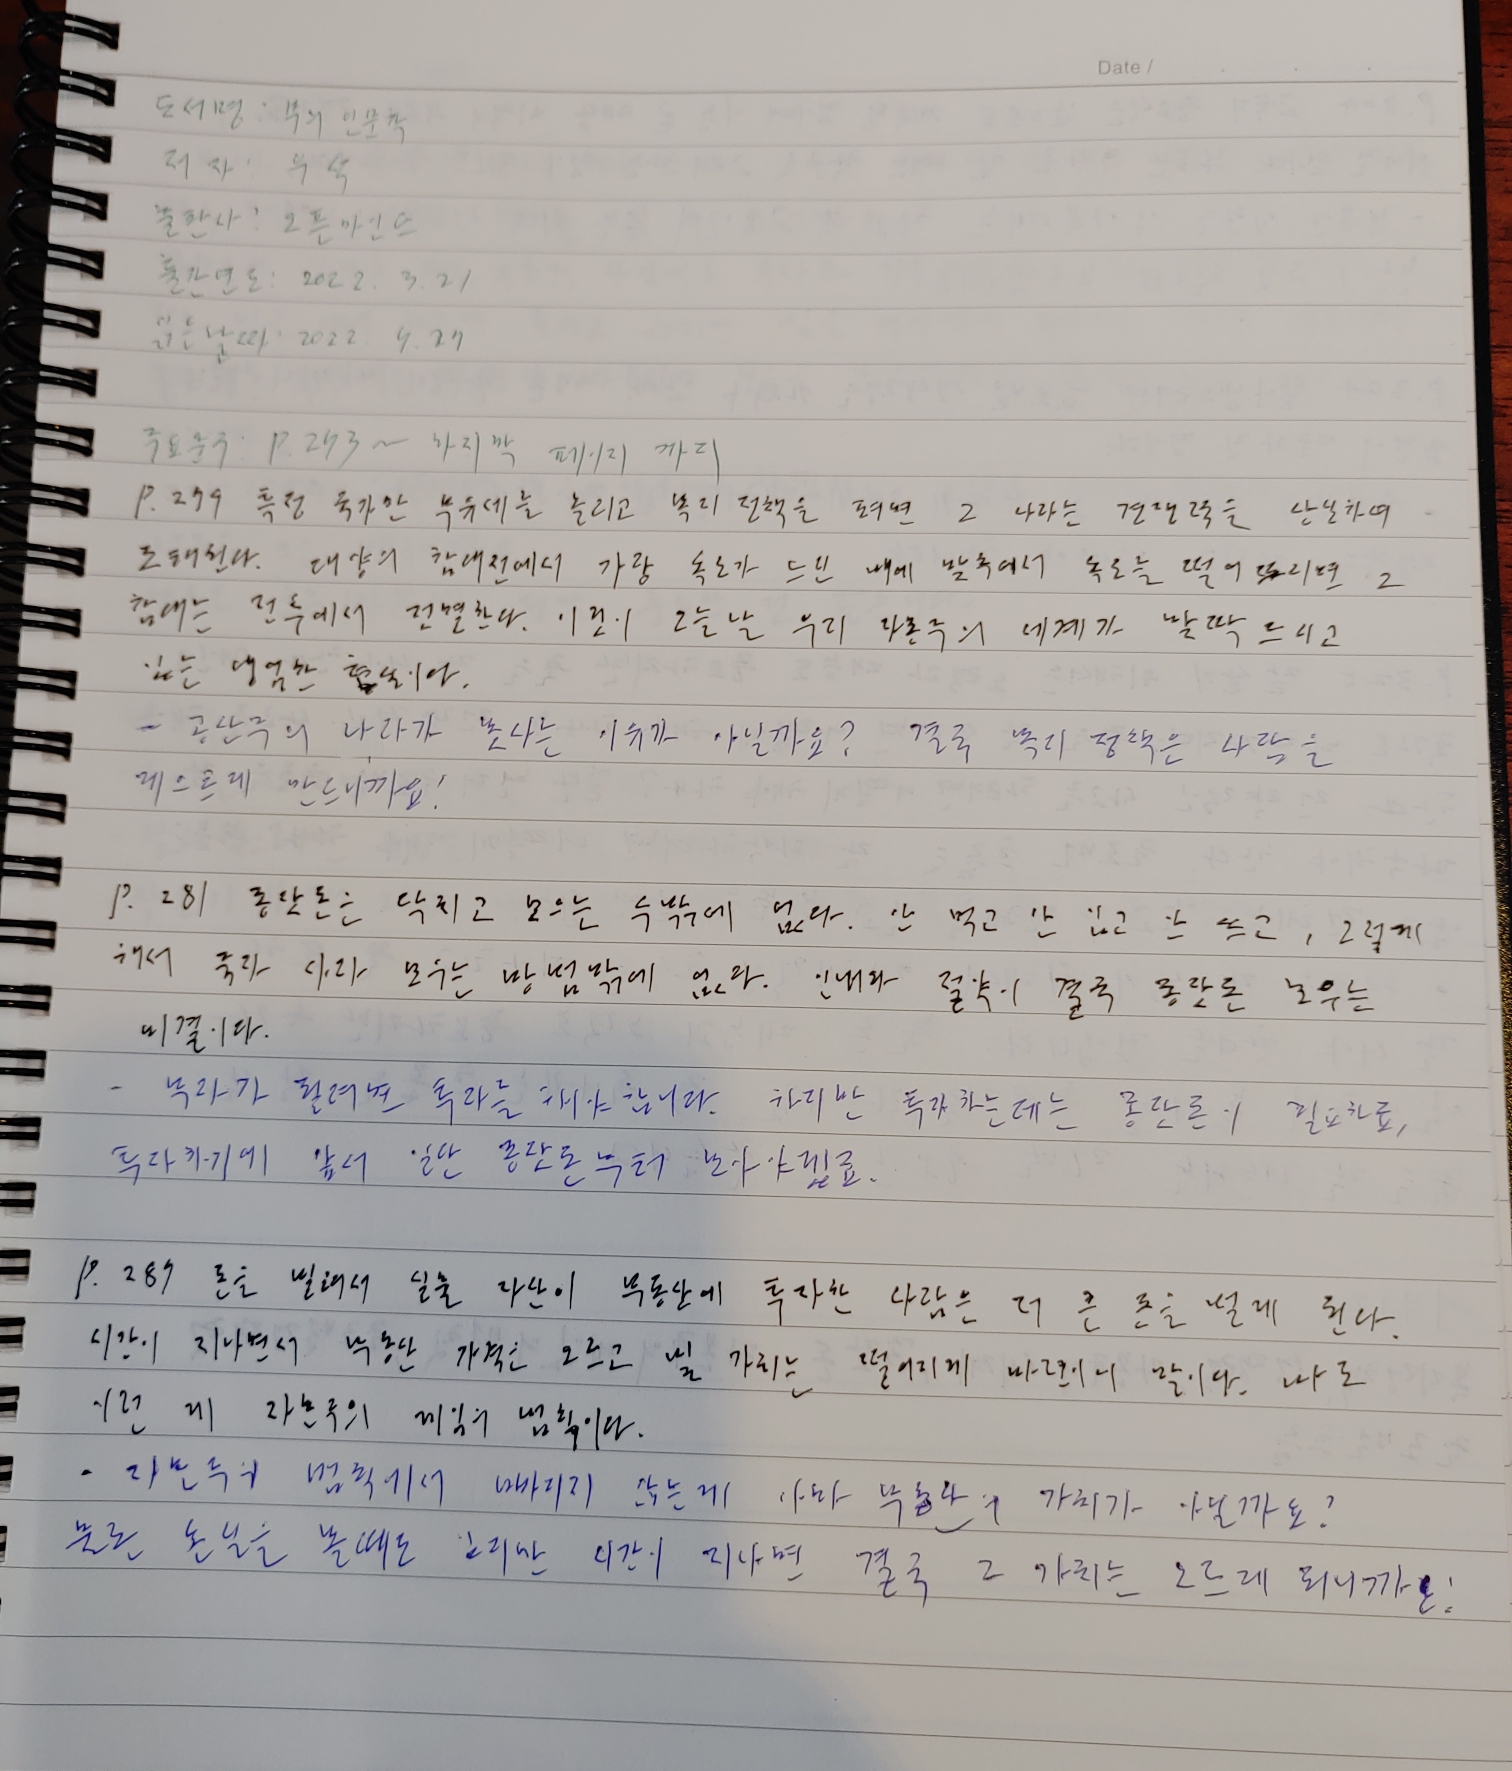 Date /
도서명 : 부의 인문학
저자 : 우석
출판사 : 오픈마인드
출간연도 : 2022. 3. 21
읽은날짜 : 2022. 4. 27
주요문구 : P. 273 ~ 마지막 페이지 까지
P. 279 특정 국가만 부유세를 늘리고 복지 정책을 펴면 그 나라는 경쟁력을 상실하여
도태된다. 대양의 함대전에서 가장 속도가 느린 배에 맞춰서 속도를 떨어뜨리면 그
함대는 전투에서 전멸한다. 이것이 오늘날 우리 자본주의 세계가 맞딱뜨리고
있는 냉엄한 현실이다.
- 공산주의 나라가 못사는 이유가 아닐까요? 결국 복지 정책은 사람을
게으르게 만드니까요!
P. 281 종잣돈은 닥치고 모으는 수밖에 없다. 안 먹고 안 입고 안 쓰고, 그렇게
해서 죽자 사자 모우는 방법밖에 없다. 인내와 절약이 결국 종잣돈 모우는
비결이다.
- 부자가 될려면 투자를 해야 합니다. 하지만 투자하는데는 종잣돈이 필요하죠,
투자하기에 앞서 일단 종잣돈부터 모아야겠죠.
P. 289 돈을 빌려서 실물 자산이 부동산에 투자한 사람은 더 큰 돈을 벌게 된다.
시간이 지나면서 부동산 가격은 오르고 빚 가치는 떨어지게 마련이니 말이다. 바로
이런 게 자본주의 게임의 법칙이다.
- 자본주의 법칙에서 빠지지 않는게 아마 부동산의 가치가 아닐까요?
물론 손실을 볼때도 있지만 시간이 지나면 결국 그 가치는 오르게 되니까요!